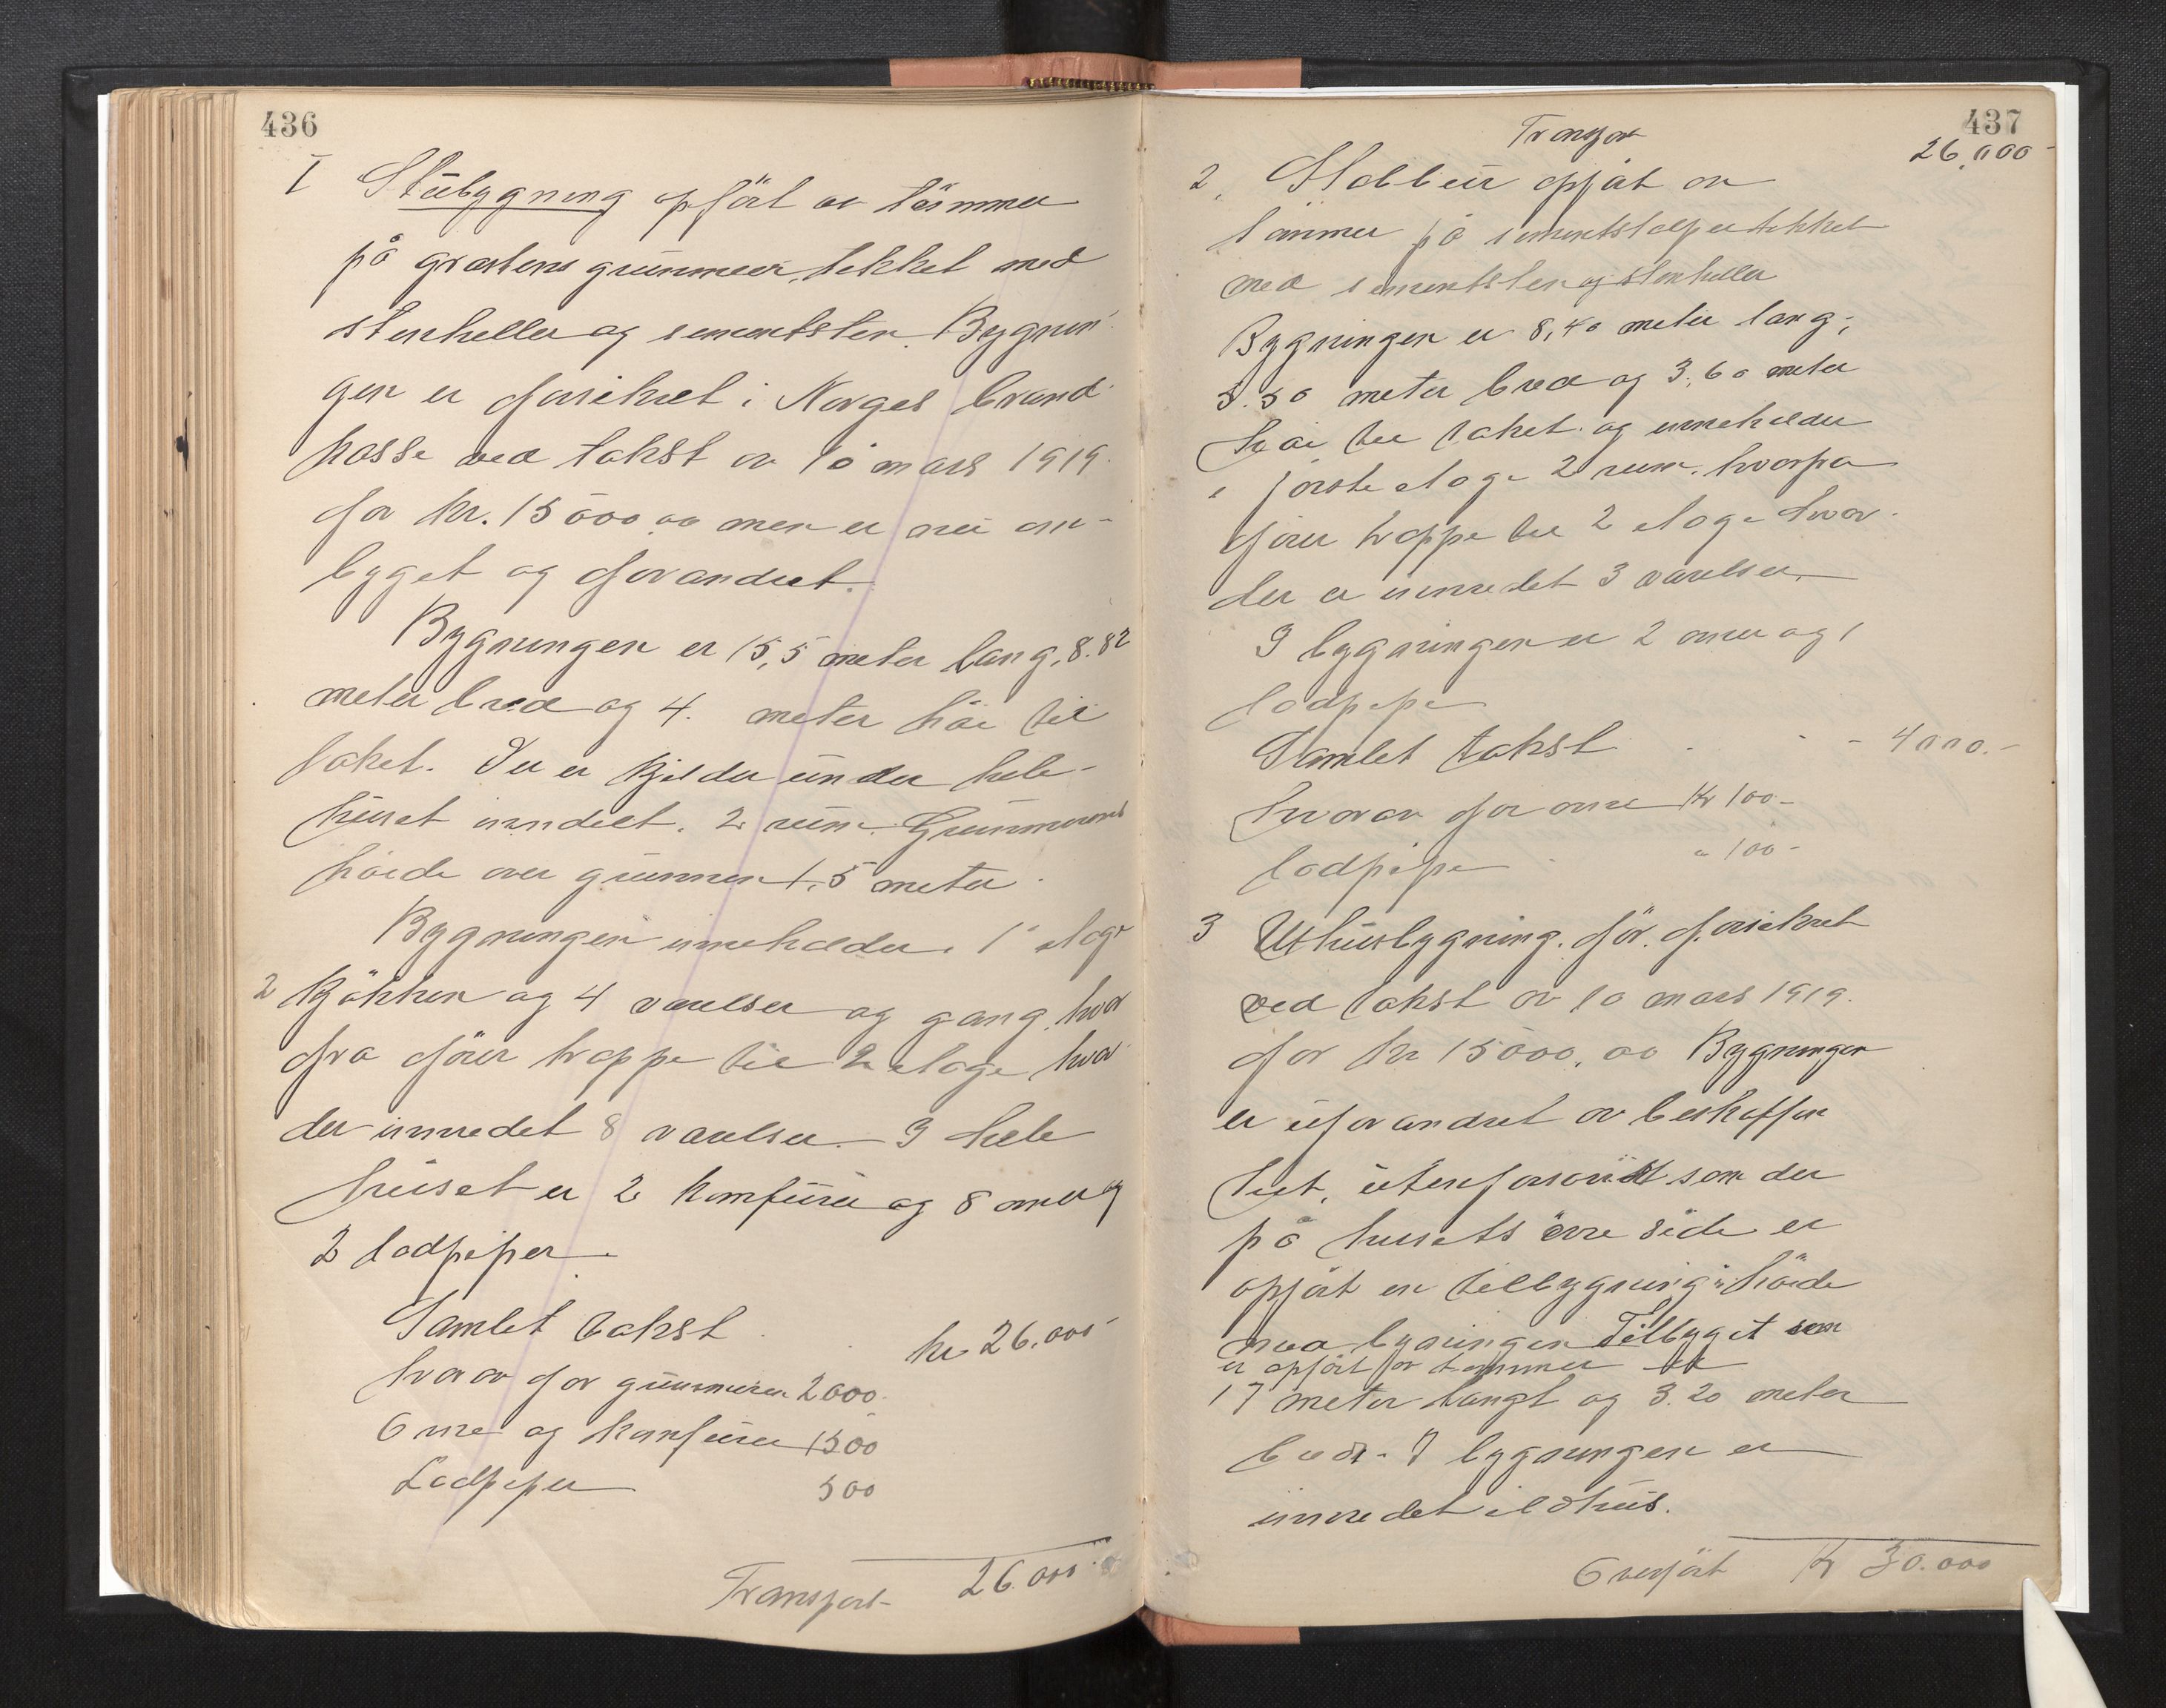 436
I Stübygning opfört av tömmer
på grastens grünmeur, tekket med
stenheller og sementsten. Bygnin-
gen er forsikret i Norges brand-
kasse ved takst av 10 mars 1919
for kr. 15000,00 men er nü om-
bygget og forandret.
Bygningen er 15,5 meter lang, 8.82
meter bred og 4. meter höi til
taket. Der er kjelder ünder hele
hüset inndelt i 2 rüm. Grünmurens
höide over grünnen 1,5 meter.
Bygningen inneholder i 1ste etage
2 kjökken og 4 værelser og gang, hvor
fra förer trappe til 2 etage hvor
der innredet 8 værelser. I hele
hüset er 2 komfürer og 8 ovner og
2 lodpiper.
Samlet takst kr 26.000-
hvorav for grünmuren 2000.
Ovne og komfürer 1500
Lodpiper 500
Transport 26.000
437
Transport 26.000-
2, Stabbür opfört av
tömmer på sementstolper tekket
med sementsten og stenheller
Bygningen er 8,40 meter lang,
5.50 meter bred og 3,60 meter
höi til taket og inneholder
i förste etage 2 rum, hvorfra
förer trappe til 2 etage hvor
der er innredet 3 værelser.
I bygningen er 2 ovner og 1
lodpipe
Samlet takst - - - 4000.-
hvorav for ovne Kr 100-
lodpipe - " 100-
3 Uthüsbygning. för forsikret
ved takst av 10 mars 1919.
for kr 15000,00 Bygningen
er üforandret av beskaffen
het, ütenforsavidt som der
på husets övre side er
opfört en tilbygning i höide
med bygningen Tilbygget som
er opfört av tömmer er
17 meter langt og 3.20 meter
bredt. I bygningen er
innredet ildhüs.
Overfört Kr 30.000